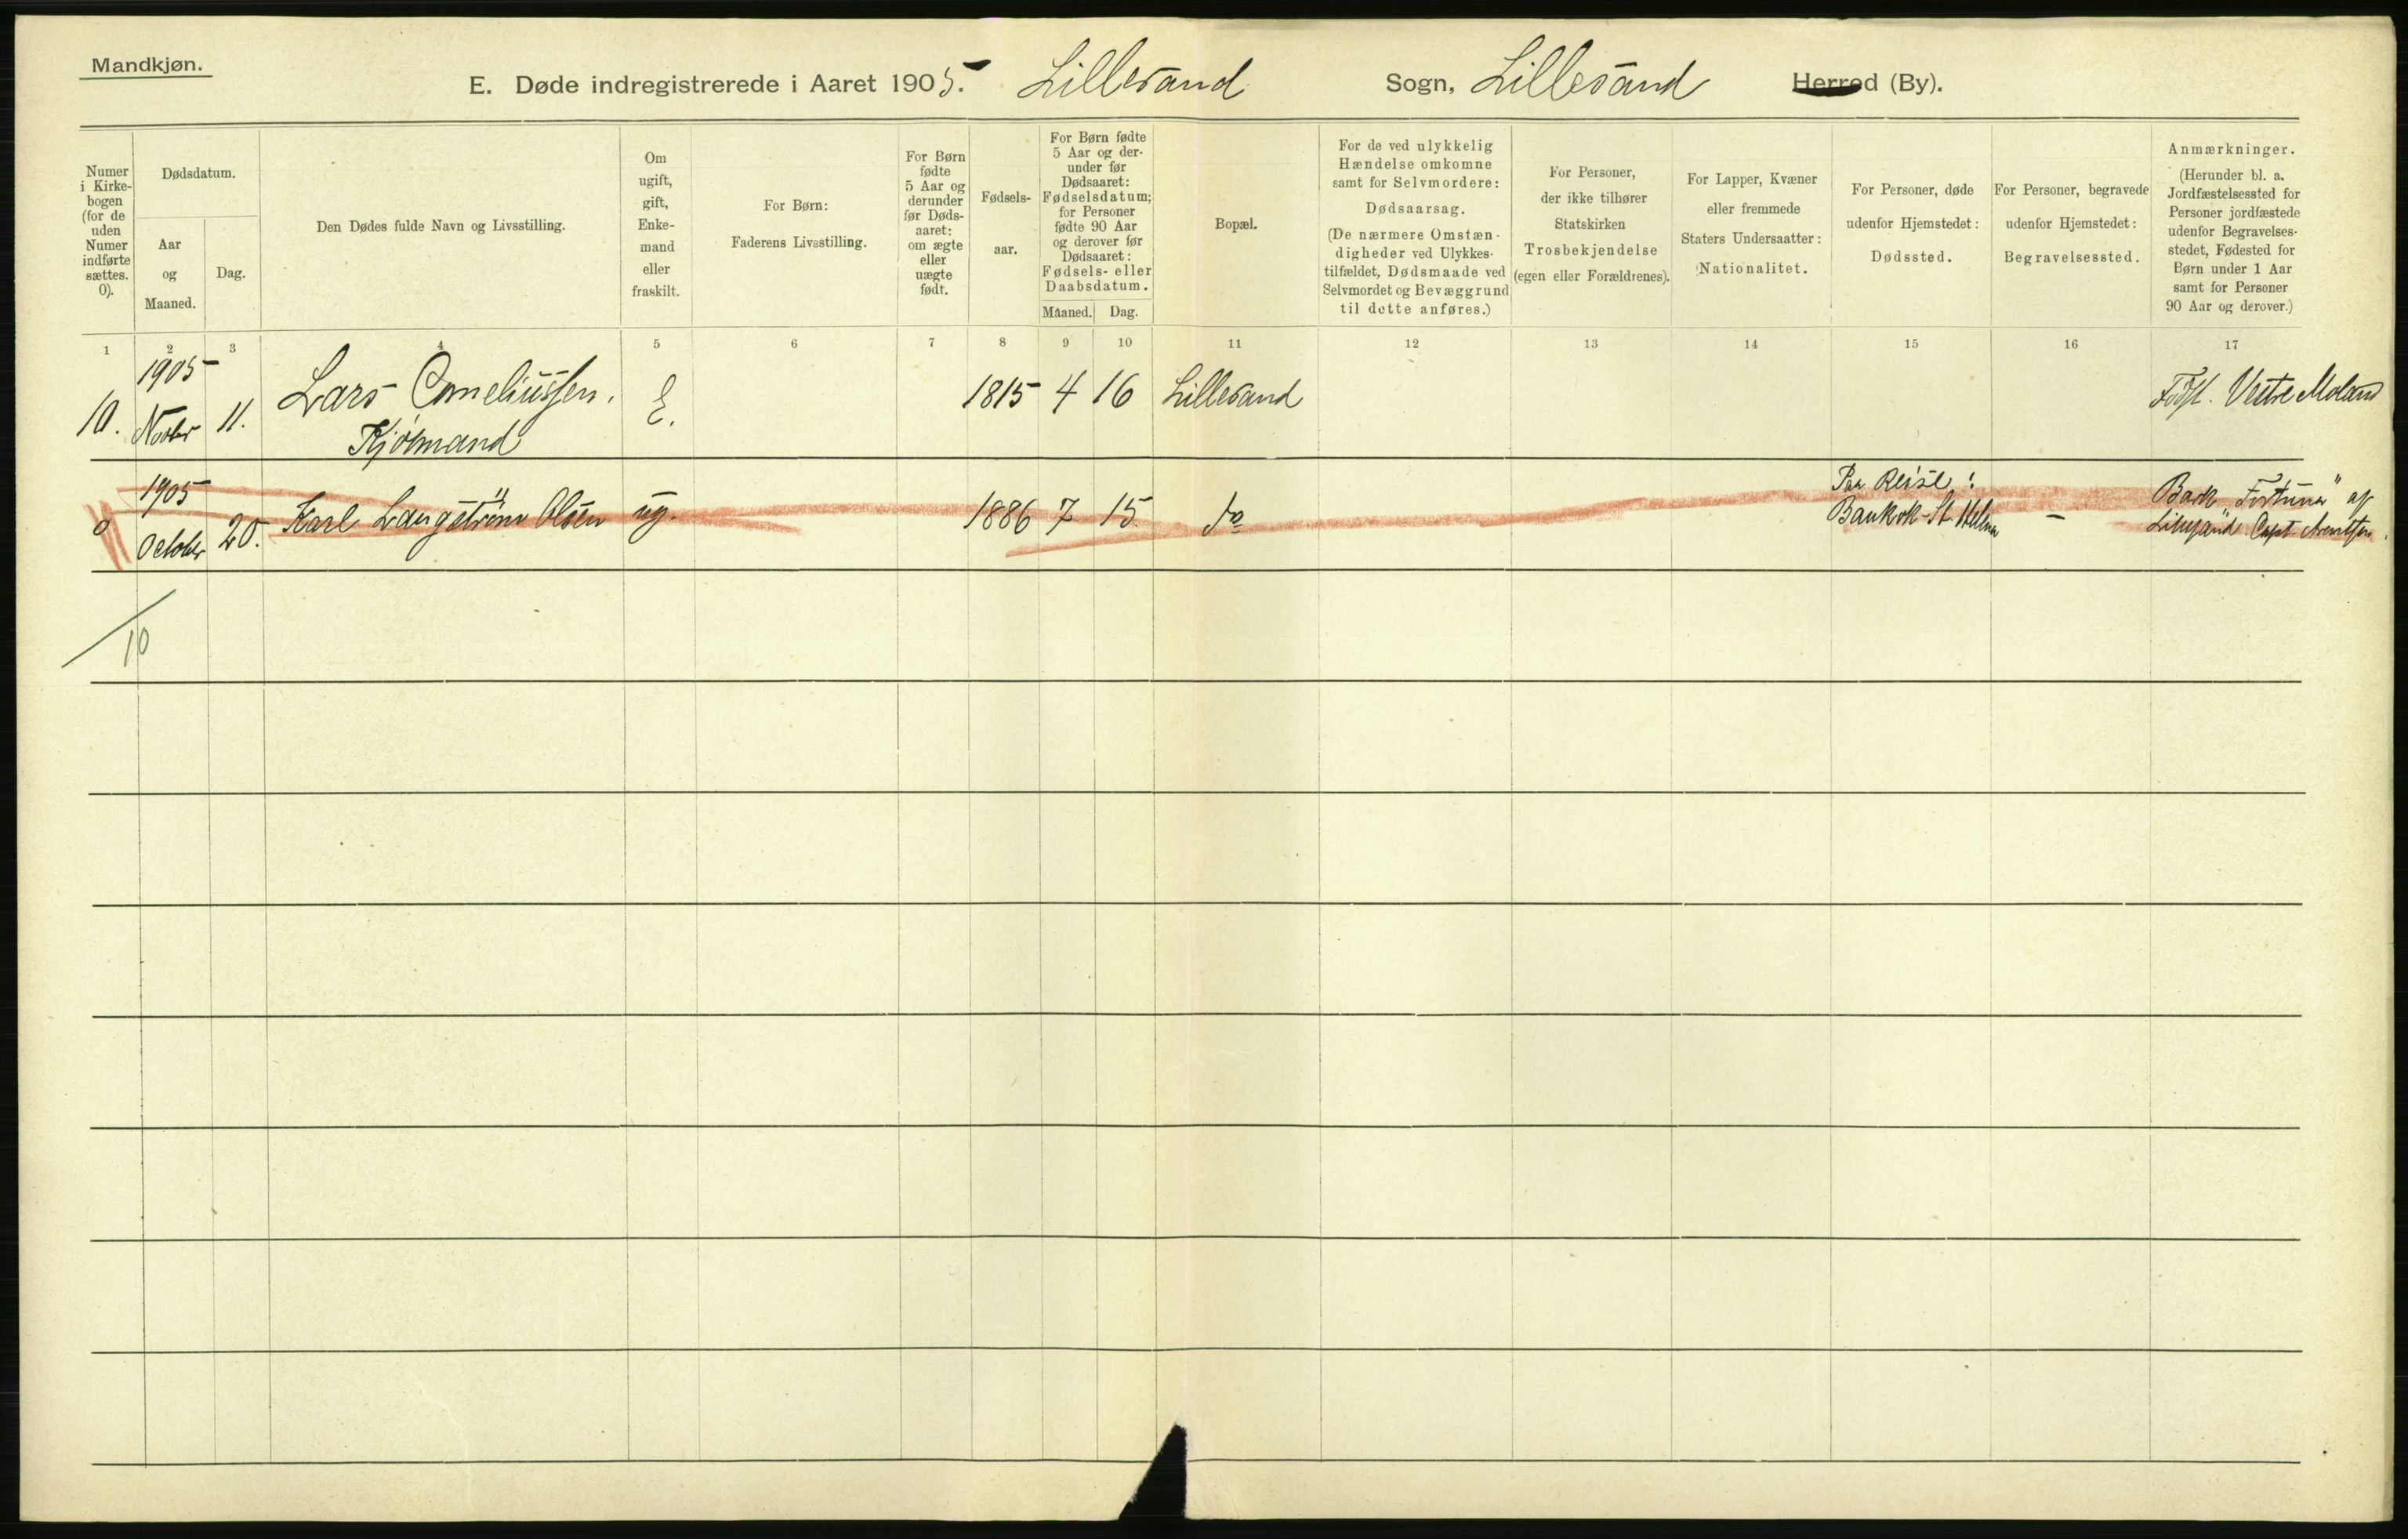 Mandkjøn.
E. Døde indregistrerede i Aaret 1905. Lillesand Sogn, Lillesand Herred (By).
Numer
i Kirke-
bogen
(for de
uden
Numer
indførte
sættes.
0).
Dødsdatum.
Aar
og
Maaned.
Dag.
Den Dødes fulde Navn og Livsstilling.
Om
ugift,
gift,
Enke-
mand
eller
fraskilt.
For Børn:
Faderens Livsstilling.
For Børn
fødte
5 Aar og
derunder
før Døds-
aaret:
om ægte
eller
uægte
født.
Fødsels-
aar.
For Børn fødte
5 Aar og der-
under før
Dødsaaret:
Fødselsdatum;
for Personer
fødte 90 Aar
og derover før
Dødsaaret:
Fødsels- eller
Daabsdatum.
Maaned. Dag.
Bopæl.
For de ved ulykkelig
Hændelse omkomne
samt for Selvmordere:
Dødsaarsag.
(De nærmere Omstæn-
digheder ved Ulykkes-
tilfældet, Dødsmaade ved
Selvmordet og Bevæggrund
til dette anføres.)
For Personer,
der ikke tilhører
Statskirken
Trosbekjendelse
(egen eller Forældrenes).
For Lapper, Kvæner
eller fremmede
Staters Undersaatter:
Nationalitet.
For Personer, døde
udenfor Hjemstedet:
Dødssted.
For Personer, begravede
udenfor Hjemstedet:
Begravelsessted.
Anmærkninger.
(Herunder bl. a.
Jordfæstelsessted for
Personer jordfæstede
udenfor Begravelses-
stedet, Fødested for
Børn under 1 Aar
samt for Personer
90 Aar og derover.)
1 2 3 4 5 6 7 8 9 10 11 12 13 14 15 16 17
1905
10. Novbr 11. Lars Corneliussen. E. 1815 4 16 Lillesand Fødst. Vestre Moland
Kjøbmand
1905 Paa Reise: Bark "Fortuna" af
0 October 20. Karl Langstrøm Olsen ug. 1886 7 15 do Bankok-St Helena - Lillesand Capt Arentsen.
10